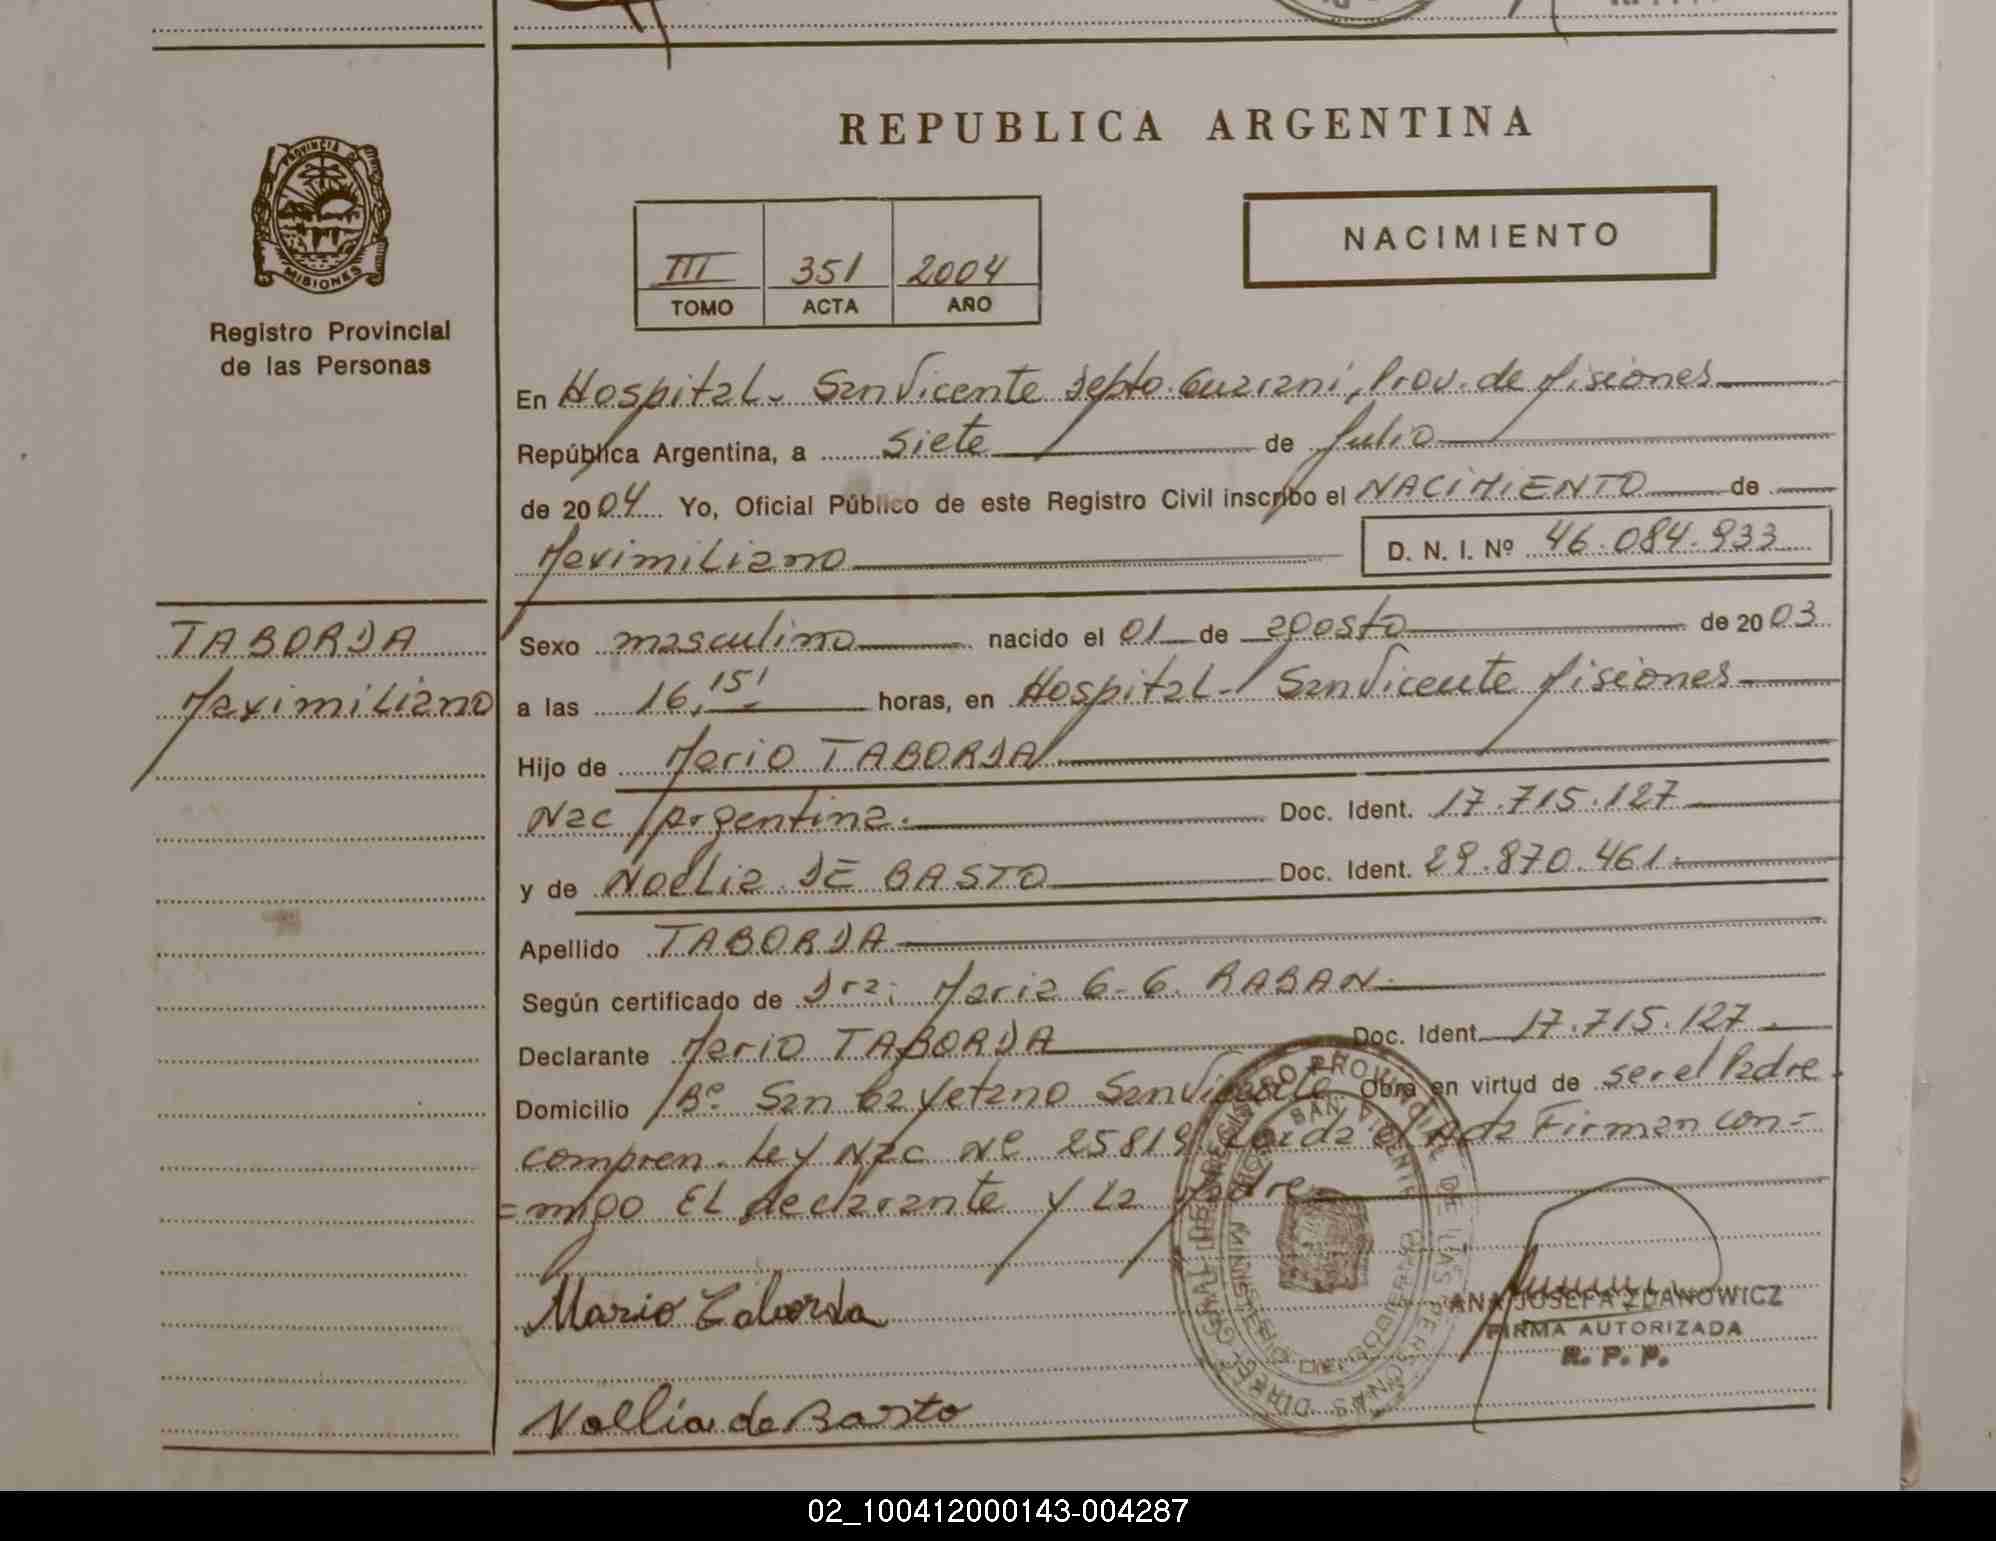 REPUBLICA ARGENTINA
PROVINCIA DE
MISIONES
Registro Provincial
de las Personas
III 351 2004
TOMO ACTA AÑO
NACIMIENTO
En Hospital - San Vicente Depto. Guarani, Prov. de Misiones
República Argentina, a siete de Julio
de 2004 Yo, Oficial Público de este Registro Civil inscribo el NACIMIENTO de
Maximiliano D. N. I. Nº 46.084.933
TABORDA
Maximiliano
Sexo masculino nacido el 01 de agosto de 2003
a las 16,15' horas, en Hospital - San Vicente Misiones
Hijo de Mario TABORDA
Nac Argentina. Doc. Ident. 17.715.127
y de Noelia DE BASTO Doc. Ident. 29.870.461.
Apellido TABORDA
Según certificado de Dra: Maria G. G. RABAN.
Declarante Mario TABORDA Doc. Ident. 17.715.127.
Domicilio Bº San Cayetano San Vicente Obra en virtud de ser el Padre.
compren. Ley Nac Nº 25819 Leida el Acta Firman con=
=migo El declarante y La Madre
Mario Taborda
Noelia de Basto
ANA JOSEFA ZDANOWICZ
FIRMA AUTORIZADA
R. P. P.
REGISTRO PROVINCIAL DE LAS PERSONAS
SAN VICENTE
MINISTERIO DE GOBIERNO
02_100412000143-004287